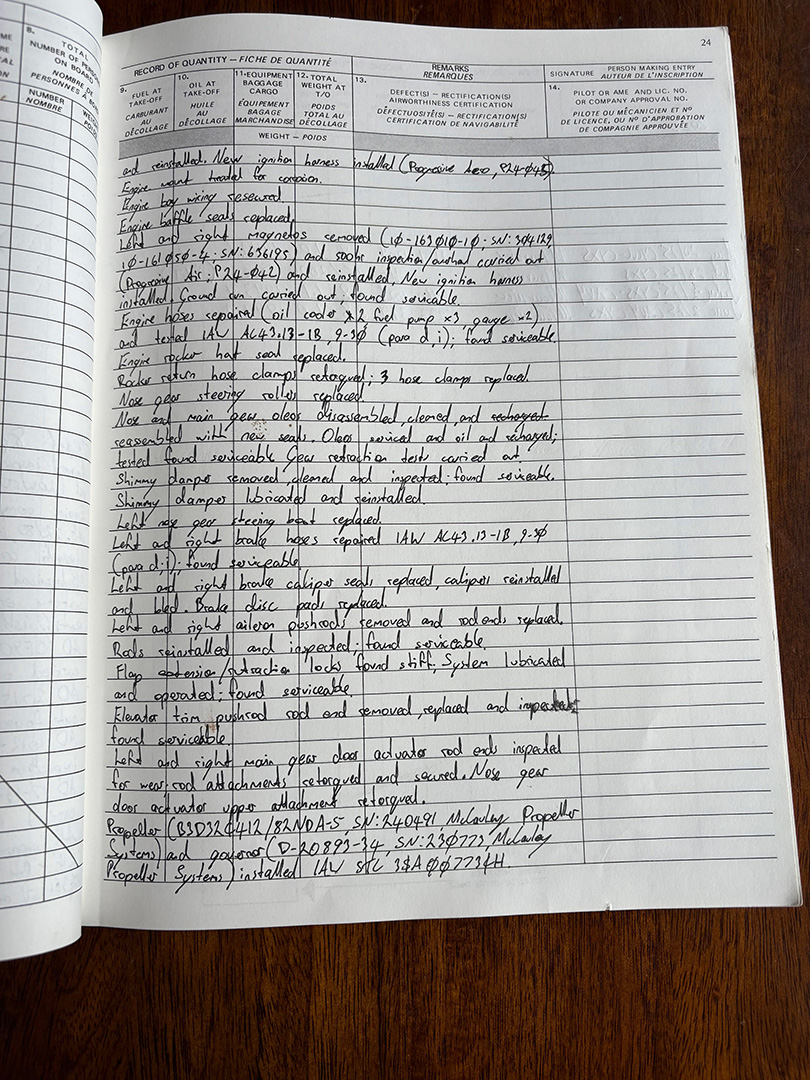 24
RECORD OF QUANTITY — FICHE DE QUANTITÉ
REMARKS
REMARQUES
SIGNATURE
PERSON MAKING ENTRY
AUTEUR DE L'INSCRIPTION
8.
TOTAL
ON BOARD
NOMBRE DE
NUMBER
NOMBRE
9.
FUEL AT
TAKE-OFF
CARBURANT
AU
DÉCOLLAGE
10.
OIL AT
TAKE-OFF
HUILE
AU
DÉCOLLAGE
11. EQUIPMENT
BAGGAGE
CARGO
ÉQUIPEMENT
BAGAGE
MARCHANDISE
12. TOTAL
WEIGHT AT
T/O
POIDS
TOTAL AU
DÉCOLLAGE
WEIGHT — POIDS
13.
DEFECT(S) — RECTIFICATION(S)
AIRWORTHINESS CERTIFICATION
DÉFECTUOSITÉ(S) — RECTIFICATION(S)
CERTIFICATION DE NAVIGABILITÉ
14.
PILOT OR AME AND LIC. NO.
OR COMPANY APPROVAL NO.
PILOTE OU MÉCANICIEN ET Nº
DE LICENCE, OU Nº D'APPROBATION
DE COMPAGNIE APPROUVÉE
and reinstalled. New ignition harness installed (Progressive Aero, P24-042).
Engine mount treated for corrosion.
Engine bay wiring resecured.
Engine baffle seals replaced.
Left and right magnetos removed (10-163010-10 - SN: 304129
10-161050-4 - SN: 636195) and 500hr inspection/overhaul carried out
(Progressive Air; P24-042) and reinstalled. New ignition harness
installed. Ground run carried out; found servicable.
Engine hoses repaired (oil cooler x2 fuel pump x3, gauge x2)
and tested IAW AC43.13-1B, 9-30 (para d,i); found serviceable.
Engine rocker seal replaced.
Rocker return hose clamps retorqued; 3 hose clamps replaced.
Nose gear steering rollers replaced
Nose and main gear oleos disassembled, cleaned, and recharged
reassembled with new seals. Oleos serviced and oil and recharged;
tested found serviceable Gear retraction tests carried out
Shimmy damper removed, cleaned and inspected; found serviceable.
Shimmy damper lubricated and reinstalled.
Left nose gear steering boot replaced.
Left and right brake hoses repaired IAW AC43.13-1B, 9-30
(para d,i); found serviceable
Left and right brake caliper seals replaced, calipers reinstalled
and bled. Brake disc pads replaced.
Left and right aileron pushrods removed and rod ends replaced.
Rods reinstalled and inspected; found serviceable.
Flap extension/retraction locks found stiff; System lubricated
and operated; found serviceable.
Elevator trim pushrod rod end removed, replaced and inspected;
found serviceable
Left and right main gear door actuator rod ends inspected
for wear; rod attachments retorqued and secured. Nose gear
door actuator upper attachment retorqued.
Propeller (B3D32C412/82NDA-5, SN: 240491 McCauley Propeller
Systems) and governor (D-20893-34, SN: 230773, McCauley
Propeller Systems) installed IAW STC SA00773CH.